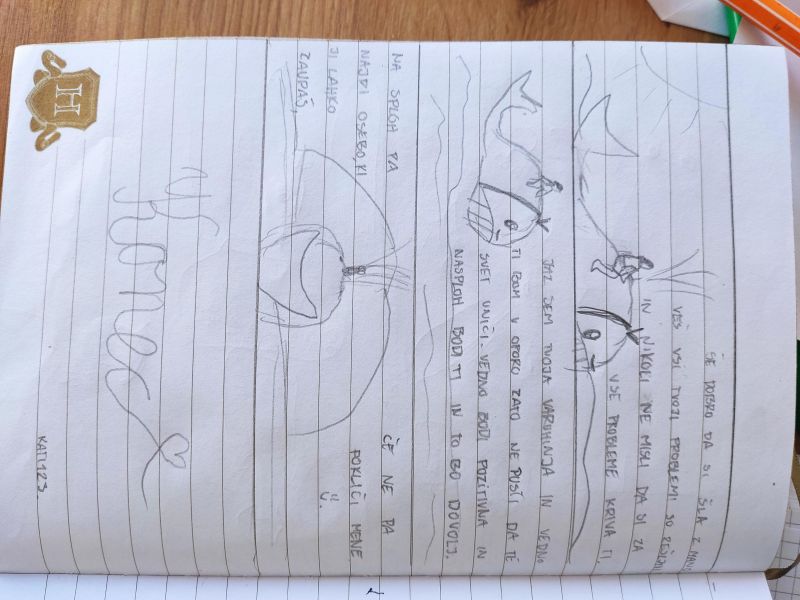 ŠE DOBRO DA SI ŠLA Z
VEŠ VSI TVOJI PROBLEMI SO
IN NIKOLI NE MISLI DA SI ZA
VSE PROBLEME KRIVA TI.
JAZ SEM TVOJA VARUHINJA IN VEDNO
TI BOM V OPORO ZATO NE PUSTI DA TE
SVET UNIČI. VEDNO BODI POZITIVNA IN
NASPLOH BODI TI IN TO BO DOVOLJ.
NA SPLOH PA
NAJDI OSEBO, KI
JI LAHKO
ZAUPAŠ,
ČE NE PA
POKLIČI MENE
Konec
KATI123
H